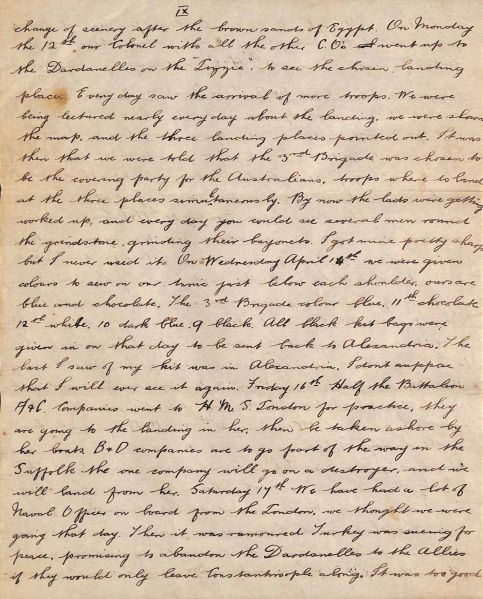 IX
change of scenery after the brown sands of Egypt. On Monday
the 12th our Colonel with all the other C.O's went up to
the Dardanelles on the "Lizzie", to see the chosen landing
place. Every day saw the arrival of more troops. We were
being lectured nearly every day about the landing, we were shown
the map, and the three landing places pointed out. It was
then that we were told that the 3rd Brigade was chosen to
be the covering party for the Australians, troops where to land
at the three places simultaneously. By now the lads were getting
worked up, and every day you could see several men round
the grindstone, grinding their bayonets. I got mine pretty sharp
but I never used it. On Wednesday April 14th we were given
colours to sew on our tunic just below each shoulder, ours are
blue and chocolate. The 3rd Brigade colour blue, 11th chocolate
12th white, 10 dark blue, 9 black. All black kit bags were
given in on that day to be sent back to Alexandria. The
last I saw of my kit was in Alexandria, I dont suppose
that I will ever see it again. Friday 16th Half the Battalion
A&C. Companies went to H.M.S. London for practice, they
are going to the landing in her, then be taken ashore by
her boats. B&D companies are to go part of the way in the
Suffolk the one company will go on a destroyer, and we
will land from her. Saturday 17th We have had a lot of
Naval Officer on board from the London, we thought we were
going that day. Then it was rumoured Turkey was sueing for
peace, promising to abandon the Dardanelles to the Allies
if they would only leave Constantinople along. It was too good